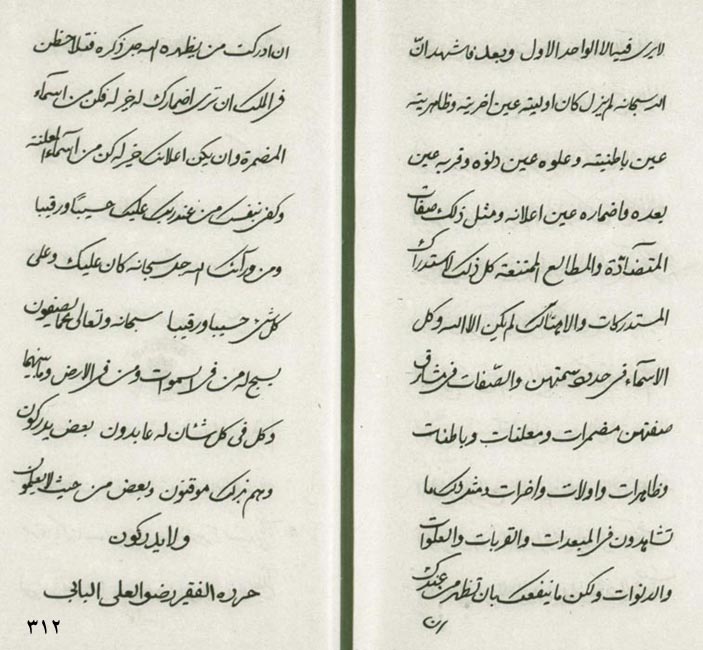 لا يرى فيها الا الواحد الاول وبعد فاشهد انّ
الله سبحانه لم يزل كان اوليته عين اخريته وظاهريته
عين باطنيته وعلوه عين دنوّه وقربه عين
بعده واضماره عين اعلانه ومثل ذلك صفات
المتضادّة والمطالع الممتنعة كل ذلك لاستدراك
المستدركات والا هنالك لم يكن الا الله وكل
الاسماء فى حدود سمتهن والصّفات فى مشارق
صفتهن مضمرات ومعلنات وباطنات
وظاهرات واولات واخرات ومثل ذلك ما
تشاهدون فى المبعدات والقربات والعلوّات
والدنوات ولكن ما ينفعك بان تظهر من عندك
ان
ان ادركت من يظهره الله جل ذكره فتلاحظن
فى الملك ان ترى اضمارك له خير له فكن من اسمآء
المضمرة وان يكن اعلانك خير له كن من اسمآء المعلنة
وكفى بنفسك من عند ربك عليك حسيبًا ورقيبا
ومن ورآئك الله جل سبحانه كان عليك وعلى
كل شئ حسيبا ورقيبا سبحانه وتعالى عما يصفون
يسبح له من فى السموات ومن فى الارض وما بينهما
وكل فى كل شان له عابدون بعض يدركون
وهم بذلك موقنون وبعض من حيث لا يعلمون
ولا يدركون
حرره الفقير رضوانعلى البابى
٣١٢